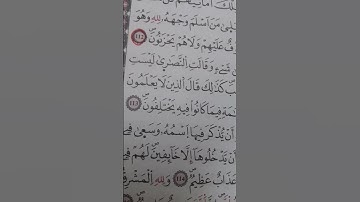 تِلْكَ أَمَانِيُّهُمْ
بَلَىٰ مَنْ أَسْلَمَ وَجْهَهُۥ لِلهِ وَهُوَ
عَلَيْهِمْ وَلَا هُمْ يَحْزَنُونَ ١١٢
شَيْءٍ وَقَالَتِ النَّصَٰرَىٰ لَيْسَتِ
كَذَٰلِكَ قَالَ الَّذِينَ لَا يَعْلَمُونَ
فِيمَا كَانُوا فِيهِ يَخْتَلِفُونَ ١١٣
أَنْ يُذْكَرَ فِيهَا اِسْمُهُۥ وَسَعَىٰ فِي
أَنْ يَدْخُلُوهَا إِلَّا خَآئِفِينَ لَهُمْ فِي
عَذَابٌ عَظِيمٌ ١١٤ وَلِلهِ الْمَشْرِقُ